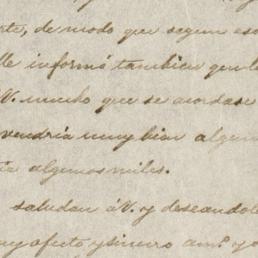 rte, de modo que segun eso
lle informó tambien que l
V. mucho que se acordase
vendria muy bien algun
algunos miles.
saludan á V. y deseandole
uy afecto y sincero am.º y